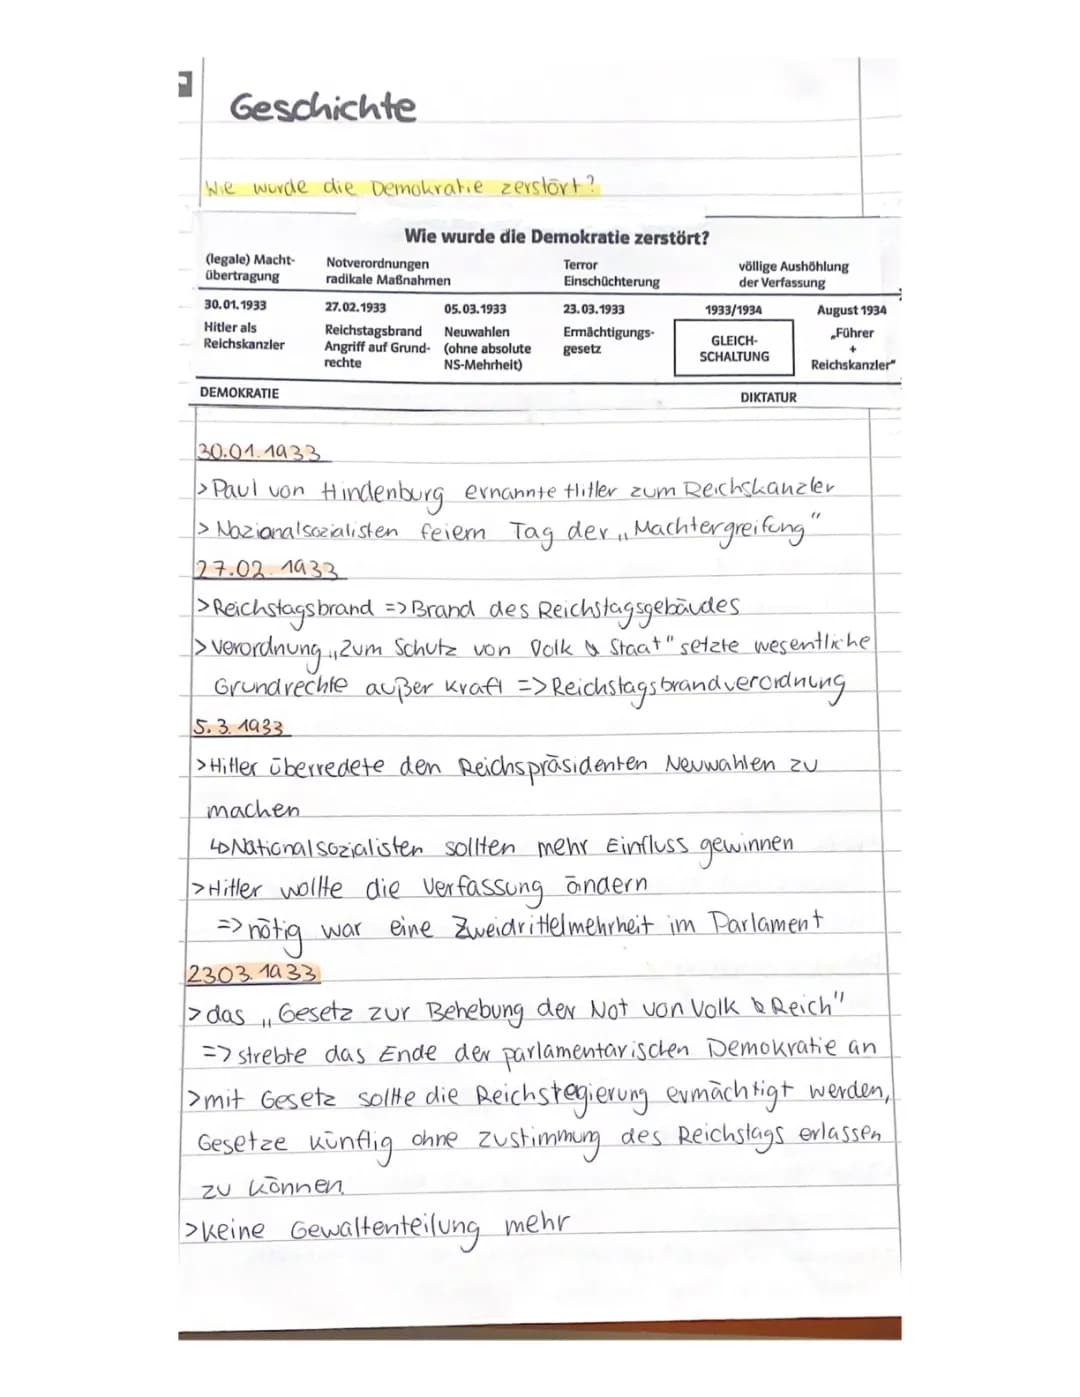 Geschichte
Wie wurde die Demokratie zerstört?
Wie wurde die Demokratie zerstört?
(legale) Macht-
übertragung
Notverordnungen
radikale Maßnahmen
Terror
Einschüchterung
völlige Aushöhlung
der Verfassung
30.01.1933
Hitler als
Reichskanzler
27.02.1933
Reichstagsbrand
Angriff auf Grund-
rechte
05.03.1933
Neuwahlen
(ohne absolute
NS-Mehrheit)
23.03.1933
Ermächtigungs-
gesetz
1933/1934
GLEICH-
SCHALTUNG
August 1934
„Führer
+
Reichskanzler"
DEMOKRATIE
DIKTATUR
30.01.1933
> Paul von Hindenburg ernannte Hitler zum Reichskanzler
> Nazionalsozialisten feiern Tag der „Machtergreifung"
27.02.1933
> Reichstagsbrand => Brand des Reichstagsgebäudes
> Verordnung „Zum Schutz von Volk & Staat" setzte wesentliche
Grundrechte außer Kraft => Reichstagsbrandverordnung
5.3.1933
> Hitler überredete den Reichspräsidenten Neuwahlen zu
machen
↳ Nationalsozialisten sollten mehr Einfluss gewinnen
> Hitler wollte die Verfassung ändern
=> nötig war eine Zweidrittelmehrheit im Parlament
2303.1933
> das „Gesetz zur Behebung der Not von Volk & Reich"
=> strebte das Ende der parlamentarischen Demokratie an
> mit Gesetz sollte die Reichsregierung ermächtigt werden,
Gesetze künftig ohne Zustimmung des Reichstags erlassen
zu können.
> keine Gewaltenteilung mehr